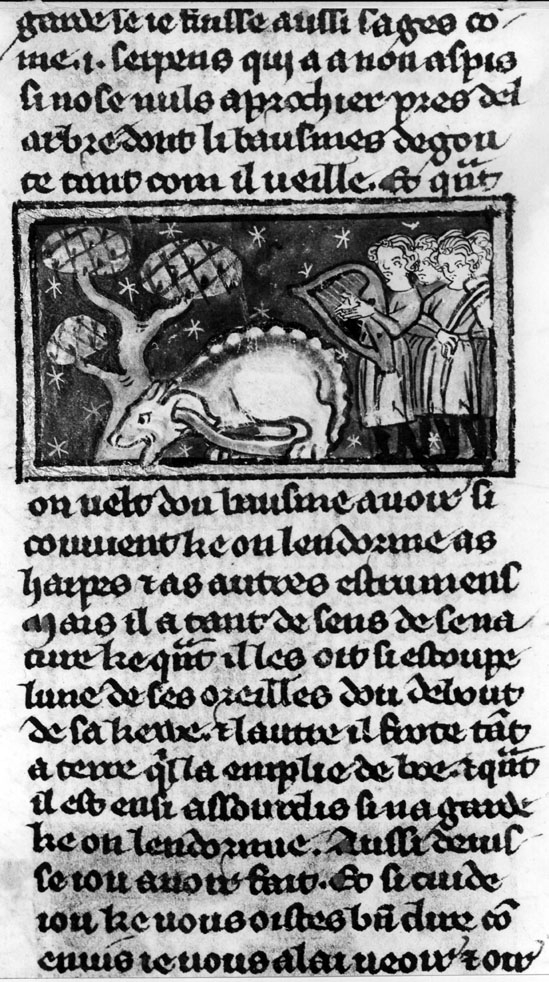 garde se ie fuisse aussi sages co
me .i. serpens qui a a non aspis
si nose nuls aprochier pres del
arbre dont li bausmes degou
te tant com il ueille. Et qu̅t
on uelt dou bausme auoir si
couuient ke on lendorme as
harpes ⁊ as autres estrumens
Mais il a tant de sens de se na
ture ke qu̅t il les oit si estoupe
lune de ses oreilles dou debout
de sa kewe. ⁊ lautre il frote ta̅t
a terre q̅l la emplie de boe. ⁊ qu̅t
il est ensi assourdis si na garde
ke on lendorme. Aussi deuis
se iou auoir fait. Et si cuide
iou ke uous oistes bn̅ dire co̅
enuis ie uous alai ueoir ⁊ oir